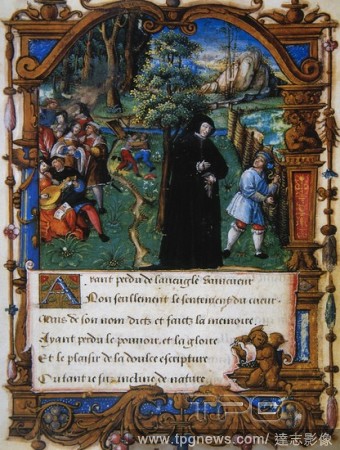 Ayant perdu de laveuglé vainceur
Non seullement le sentiment du cueur.
Mais de son nom dictz et faictz la memoire
Ayant perdu le pouvoir, et la gloire
Et le plaisir de la doulce escripture
Ou tant je suis incline de nature
TPG
www.tpgnews.com/ 達志影像